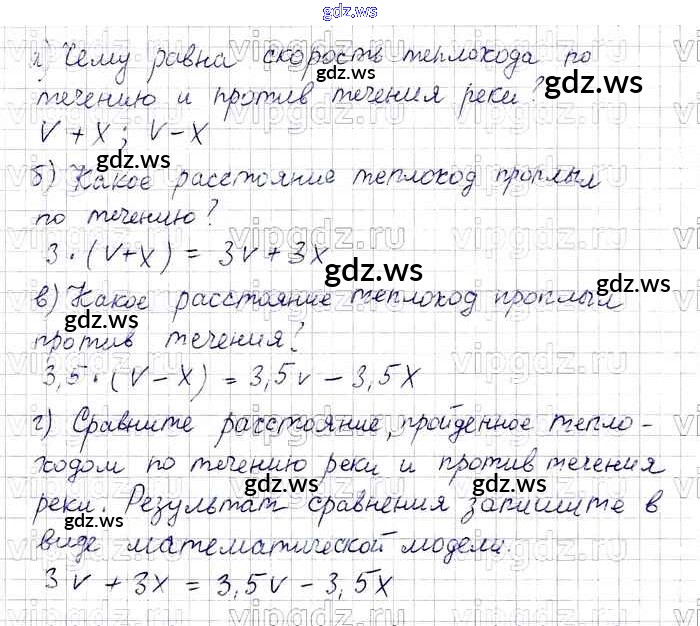 gdz.ws
а) Чему равна скорость теплохода по
течению и против течения реки?
gdz.ws
gdz.ws
V + X ; V - X
gdz.ws
б) Какое расстояние теплоход проплыл
по течению?
3 · (V + X) = 3V + 3X
gdz.ws
gdz.ws
в) Какое расстояние теплоход проплыл
gdz.ws
против течения?
3,5 · (V - X) = 3,5V - 3,5X
г) Сравните расстояние, пройденное тепло-
gdz.ws
ходом по течению реки и против течения
gdz.ws
реки. Результат сравнения запишите в
gdz.ws
виде математической модели.
gdz.ws
3V + 3X = 3,5V - 3,5X
gdz.ws
gdz.ws
vipgdz.ru